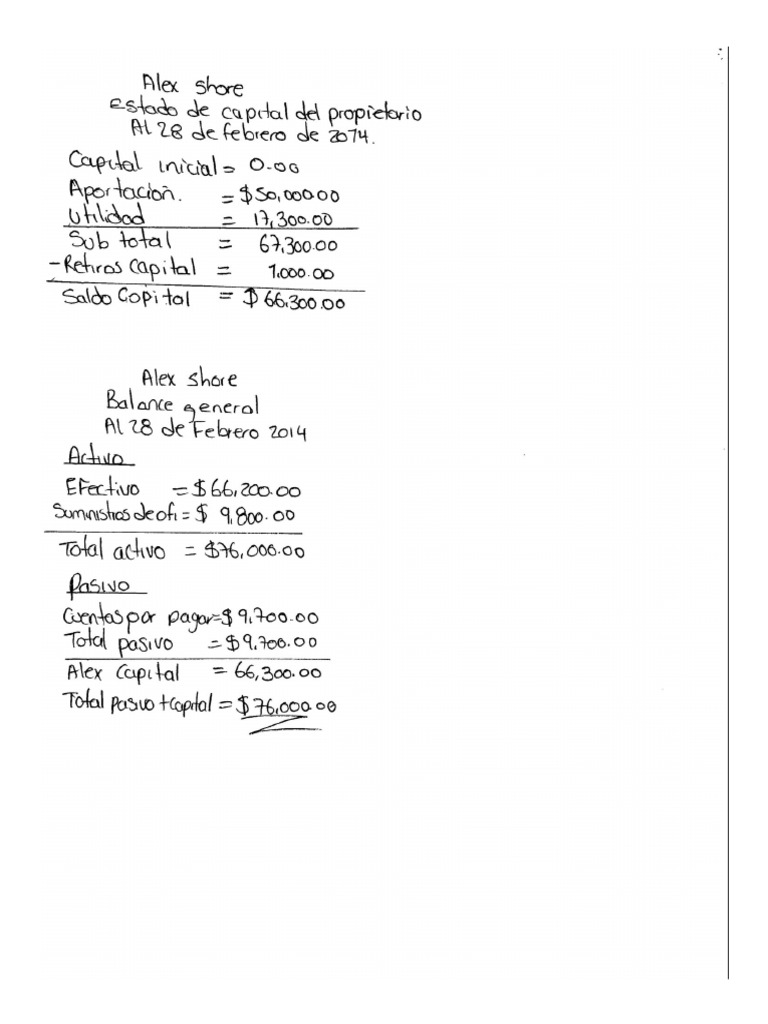 Alex Shore
Estado de capital del propietario
Al 28 de febrero de 2014.
Capital inicial = 0.00
Aportación. = $50,000.00
Utilidad = 17,300.00
Sub total = 67,300.00
- Retiros Capital = 1.000.00
Saldo Capital = $66,300.00
Alex Shore
Balance general
Al 28 de Febrero 2014
Activo
Efectivo = $66,200.00
Suministros de ofi = $ 9,800.00
Total activo = $76,000.00
Pasivo
Cuentas por pagar = $9,700.00
Total pasivo = $9.700.00
Alex Capital = 66,300.00
Total pasivo + Capital = $76,000.00